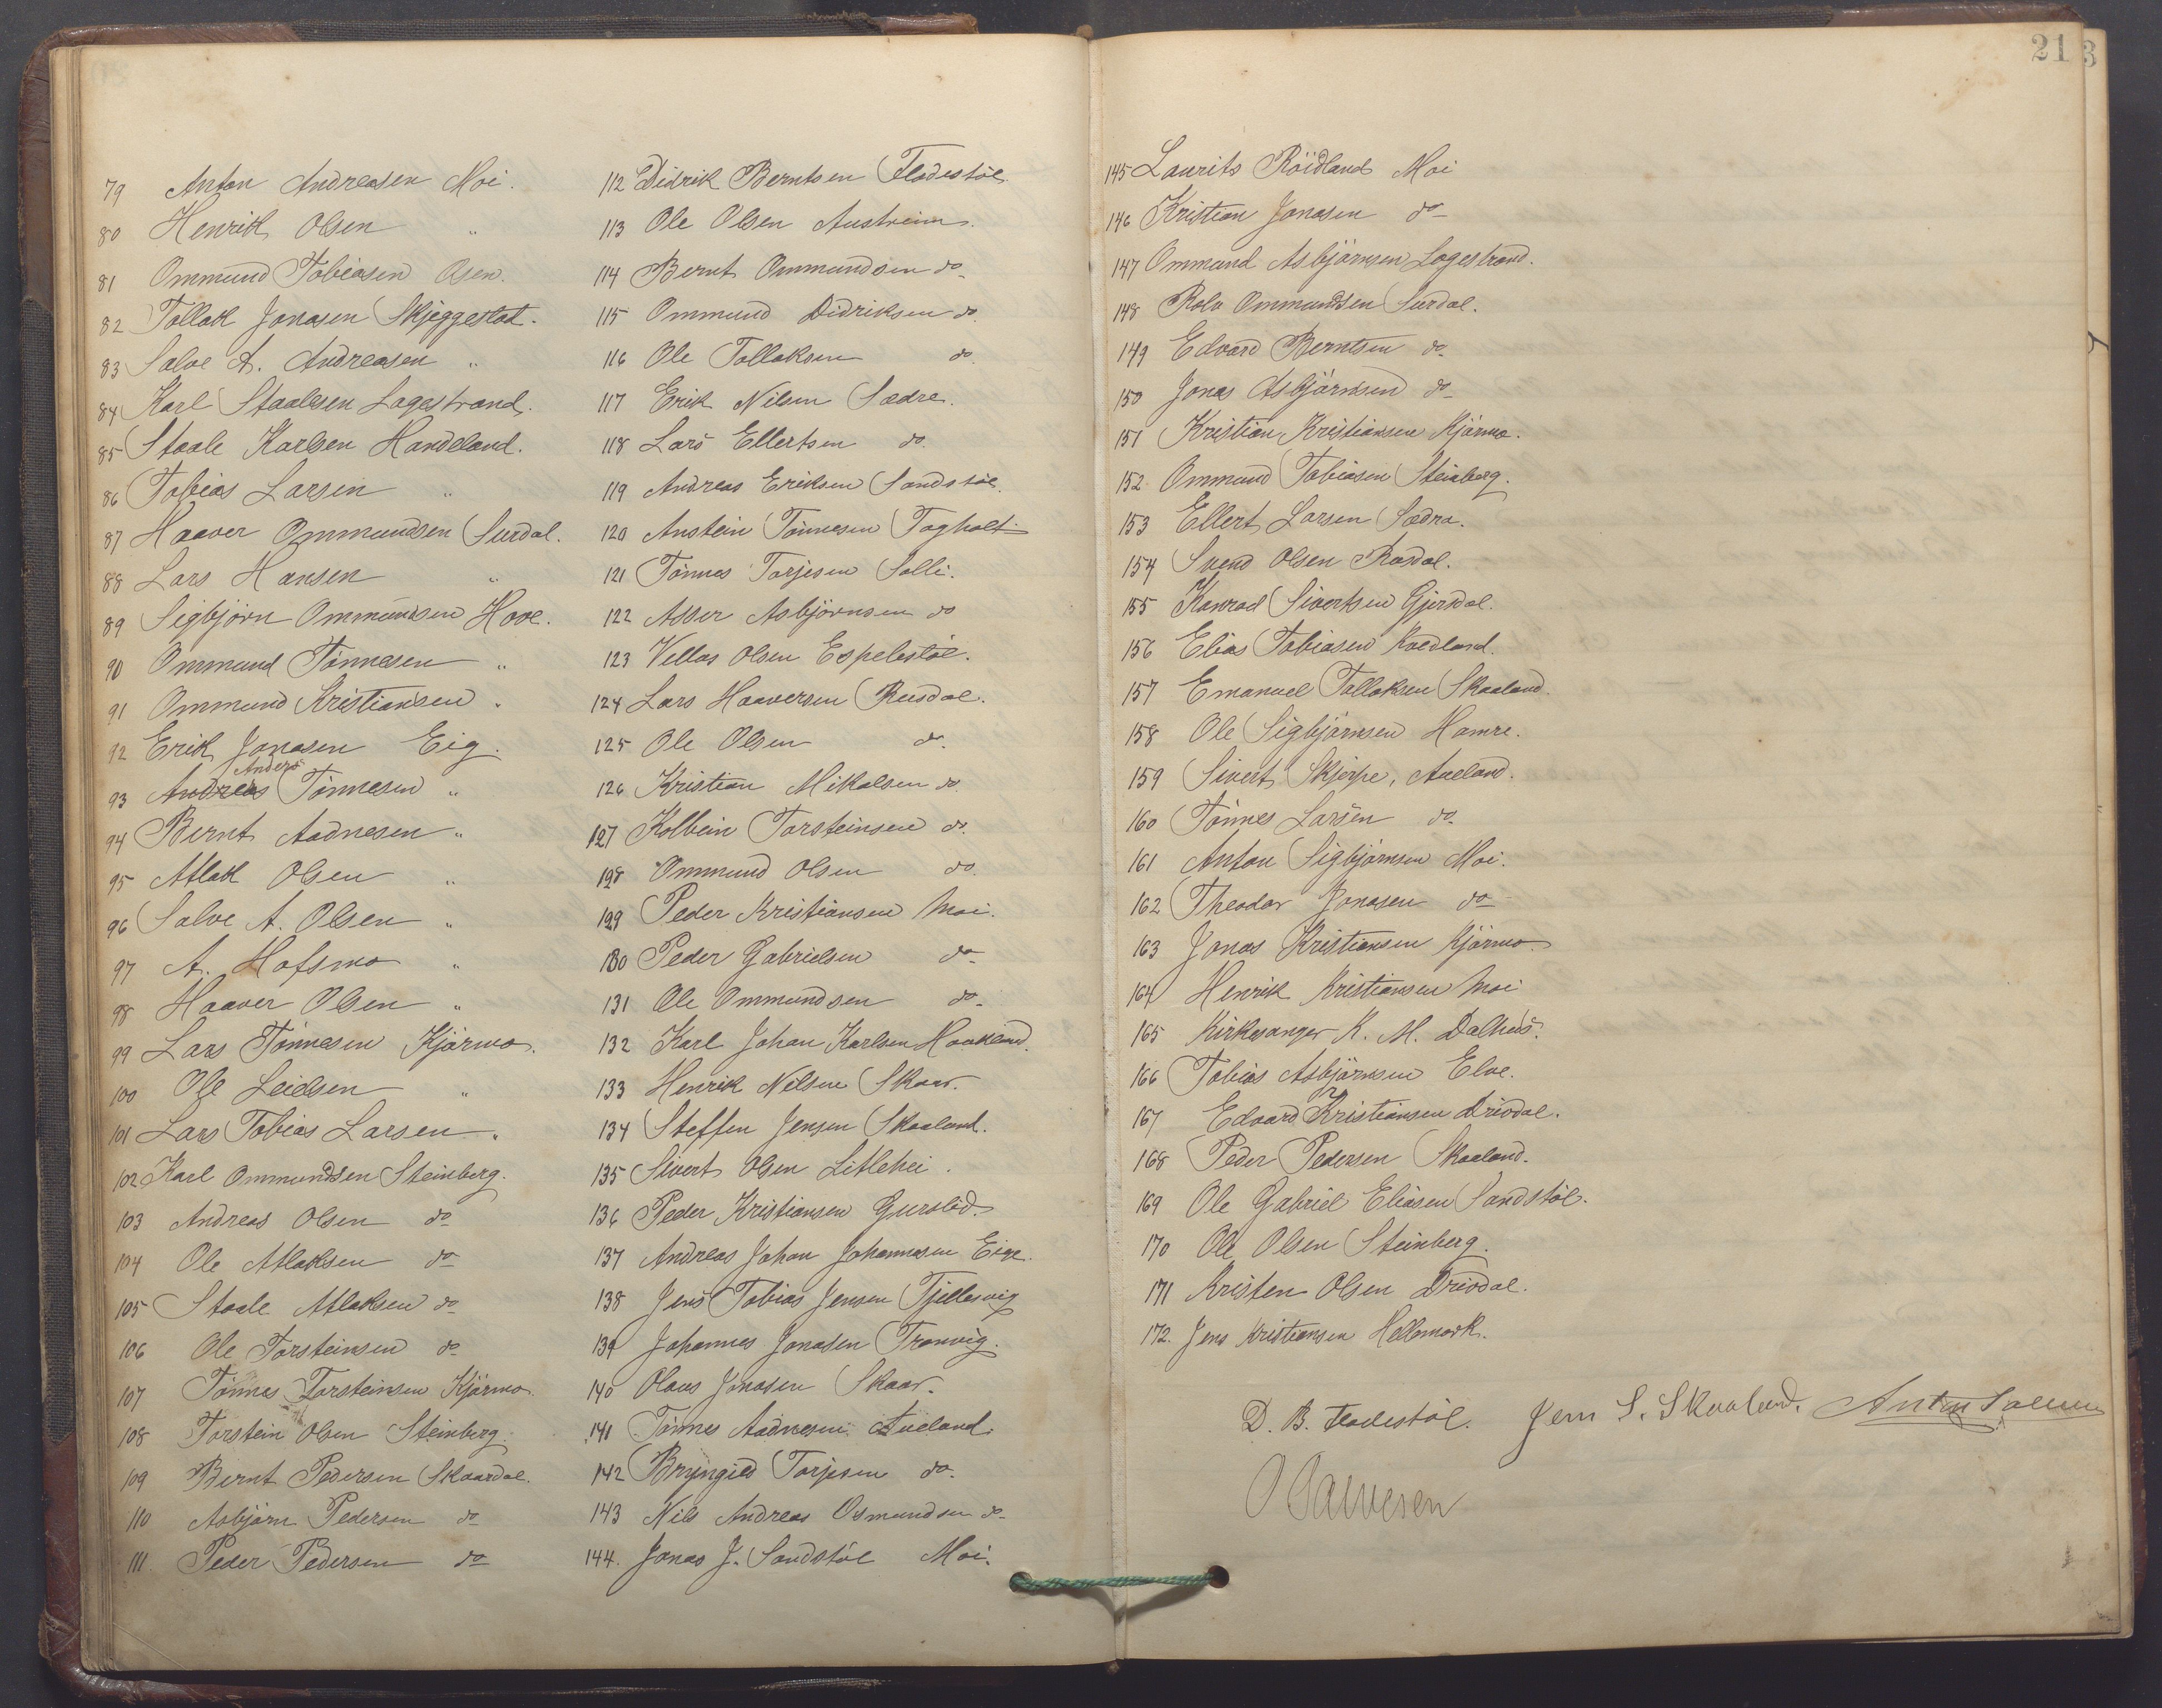 79 Anton Andreasen Moi.
80 Henrik Olsen "
81 Ommund Tobiasen Osen.
82 Tollak Jonasen Skjeggestad.
83 Salve A. Andreasen "
84 Karl Staalesen Lagestrand.
85 Staale Karlsen Handeland.
86 Tobias Larsen "
87 Haaver Ommundsen Surdal.
88 Lars Hansen "
89 Sigbjörn Ommundsen Hove.
90 Ommund Tönnesen "
91 Ommund Kristiansen "
92 Erik Jonasen Eig.
Anders
93 Andreas Tönnesen "
94 Bernt Aadnesen "
95 Atlak Olsen "
96 Salve A. Olsen "
97 A. Hofsmo "
98 Haaver Olsen "
99 Lars Tönnesen Kjörmo.
100 Ole Leidsen "
101 Lars Tobias Larsen "
102 Karl Ommundsen Steinberg.
103 Andreas Olsen do
104 Ole Atlaksen do
105 Staale Atlaksen do
106 Ole Torsteinsen do
107 Tönnes Torsteinsen Kjörmo.
108 Torstein Olsen Steinberg.
109 Bernt Pedersen Skaardal.
110 Asbjörn Pedersen do
111. Peder Pedersen do
112 Didrik Berntsen Fladestöl.
113 Ole Olsen Austreim.
114 Bernt Ommundsen do
115 Ommund Didriksen do
116 Ole Tollaksen do
117 Erik Nilsen Sædre.
118 Lars Ellertsen do.
119 Andreas Eriksen Sandstöl.
120 Anstein Tönnesen Togholt
121 Tönnes Torjesen Solli.
122 Asser Asbjörnsen do
123 Vellas Olsen Espelestöl.
124 Lars Haaversen Rusdal.
125 Ole Olsen do.
126 Kristian Mikalsen do.
127 Kolbein Torsteinsen do.
128 Ommund Olsen do.
129 Peder Kristiansen Moi.
130 Peder Gabrielsen do
131 Ole Ommundsen do.
132 Karl Johan Karlsen Haukland.
133 Henrik Nilsen Skaar.
134 Steffen Jensen Skaaland.
135 Sivert Olsen Litlehei.
136 Peder Kristiansen Gurslid.
137 Andreas Johan Johannesen Eige.
138 Jens Tobias Jensen Tjellesvig
139 Johannes Jonasen Tronvig.
140 Olaus Jonasen Skaar.
141 Tönnes Aadnesen Aueland.
142 Bryngild Torjesen do.
143 Nils Andreas Osmundsen do
144. Jonas J. Sandstöl Moi.
21
3
145 Laurits Röidland Moi
146 Kristian Jonasen do
147 Ommund Asbjörnsen Lagestrand.
148 Rolv Ommundsen Surdal.
149 Edvard Berntsen do
150 Jonas Asbjörnsen do
151 Kristian Kristiansen Kjörmo.
152 Ommund Tobiasen Steinberg.
153 Ellert Larsen Sædra.
154 Svend Olsen Rosdal.
155 Konrad Sivertsen Gjersdal.
156 Elias Tobiasen Kvedland.
157 Emanuel Tollaksen Skaaland.
158 Ole Sigbjörnsen Hamre.
159 Sivert Skjerpe, Aueland.
160 Tönnes Larsen do
161 Anton Sigbjörnsen Moi.
162 Theodor Jonasen do
163 Jonas Kristiansen Kjörmo.
164 Henrik Kristiansen Moi
165 Kirkesanger K. M. Dalhus.
166 Tobias Asbjörnsen Elve.
167 Edvard Kristiansen Drivdal.
168 Peder Pedersen Skaaland.
169 Ole Gabriel Eliasen Sandstöl.
170 Ole Olsen Steinberg.
171 Kristen Olsen Drivdal.
172. Jens Kristiansen Hellemork.
D. B. Fladestöl. Jens S. Skaaland. Anton
O Salvesen